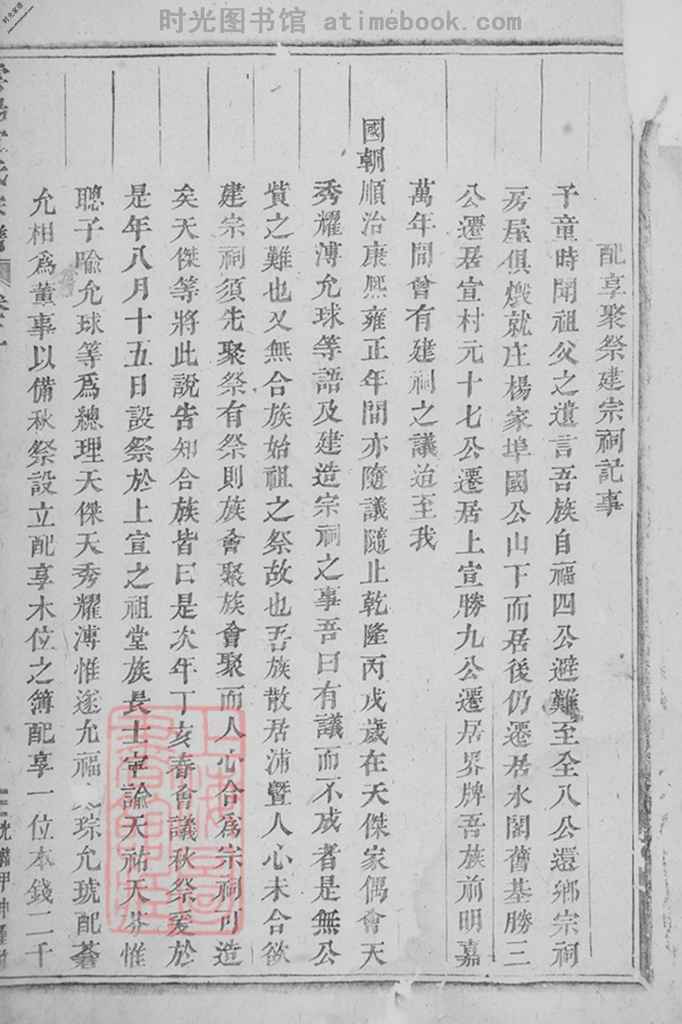 时光图书馆 atimebook.com
配享聚祭建宗祠記事
予童時聞祖父之遺言吾族自福四公避難至全八公還鄉宗祠
房屋俱燬就庄楊家埠國公山下而居後仍遷居水閣舊基勝三
公遷居宣村元十七公遷居上宣勝九公遷居界牌吾族前明嘉
萬年間曾有建祠之議迨至我
國朝順治康熙雍正年間亦隨議隨止乾隆丙戌歲在天傑家偶會天
秀耀溥允球等語及建造宗祠之事吾曰有議而不成者是無公
貲之難也又無合族始祖之祭故也吾族散居浦暨人心未合欲
建宗祠須先聚祭有祭則族會聚族會聚而人心合爲宗祠可造
矣天傑等將此說告知合族皆曰是次年丁亥春會議秋祭爰於
是年八月十五日設祭於上宣之祖堂族長士寧諭天祐天芬惟
聰子喻允球等爲總理天傑天秀耀溥惟遂允福琮允琥配蒼
允相爲董事以備秋祭設立配享木位之簿配享一位本錢二千